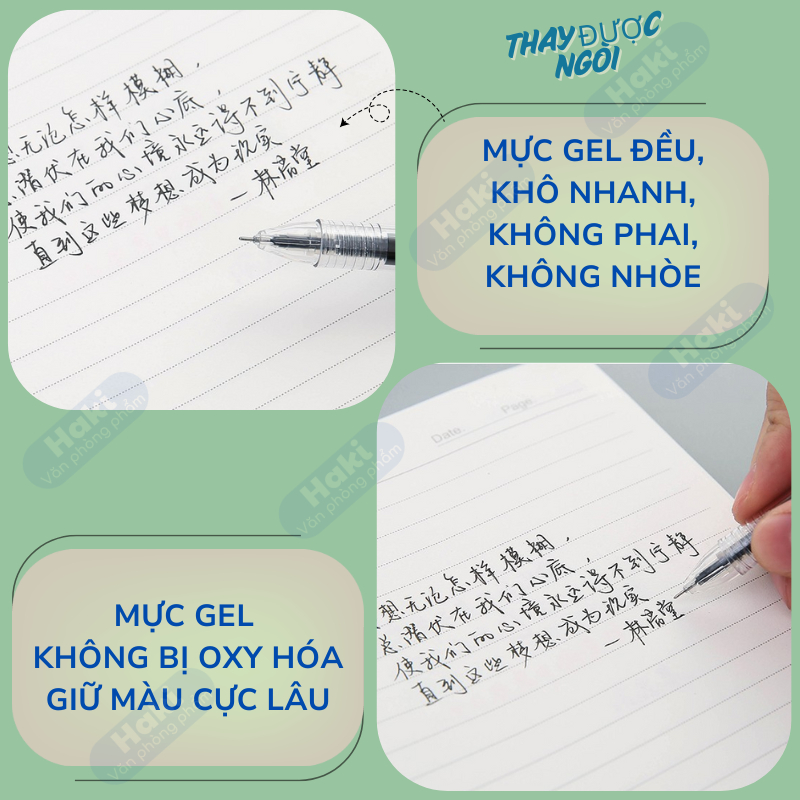 THAY ĐƯỢC
NGÒI
MỰC GEL ĐỀU,
KHÔ NHANH,
KHÔNG PHAI,
KHÔNG NHÒE
想无论怎样模糊，
总潜伏在我们心底，
使我们的心境永远得不到宁静
直到这些梦想成为现实
—林语堂
Date. Page.
想无论怎样模糊，
总潜伏在我们心底，
使我们的心境永远得不到宁静
直到这些梦想成为现实
—林语堂
MỰC GEL
KHÔNG BỊ OXY HÓA
GIỮ MÀU CỰC LÂU
Haki
Văn phòng phẩm